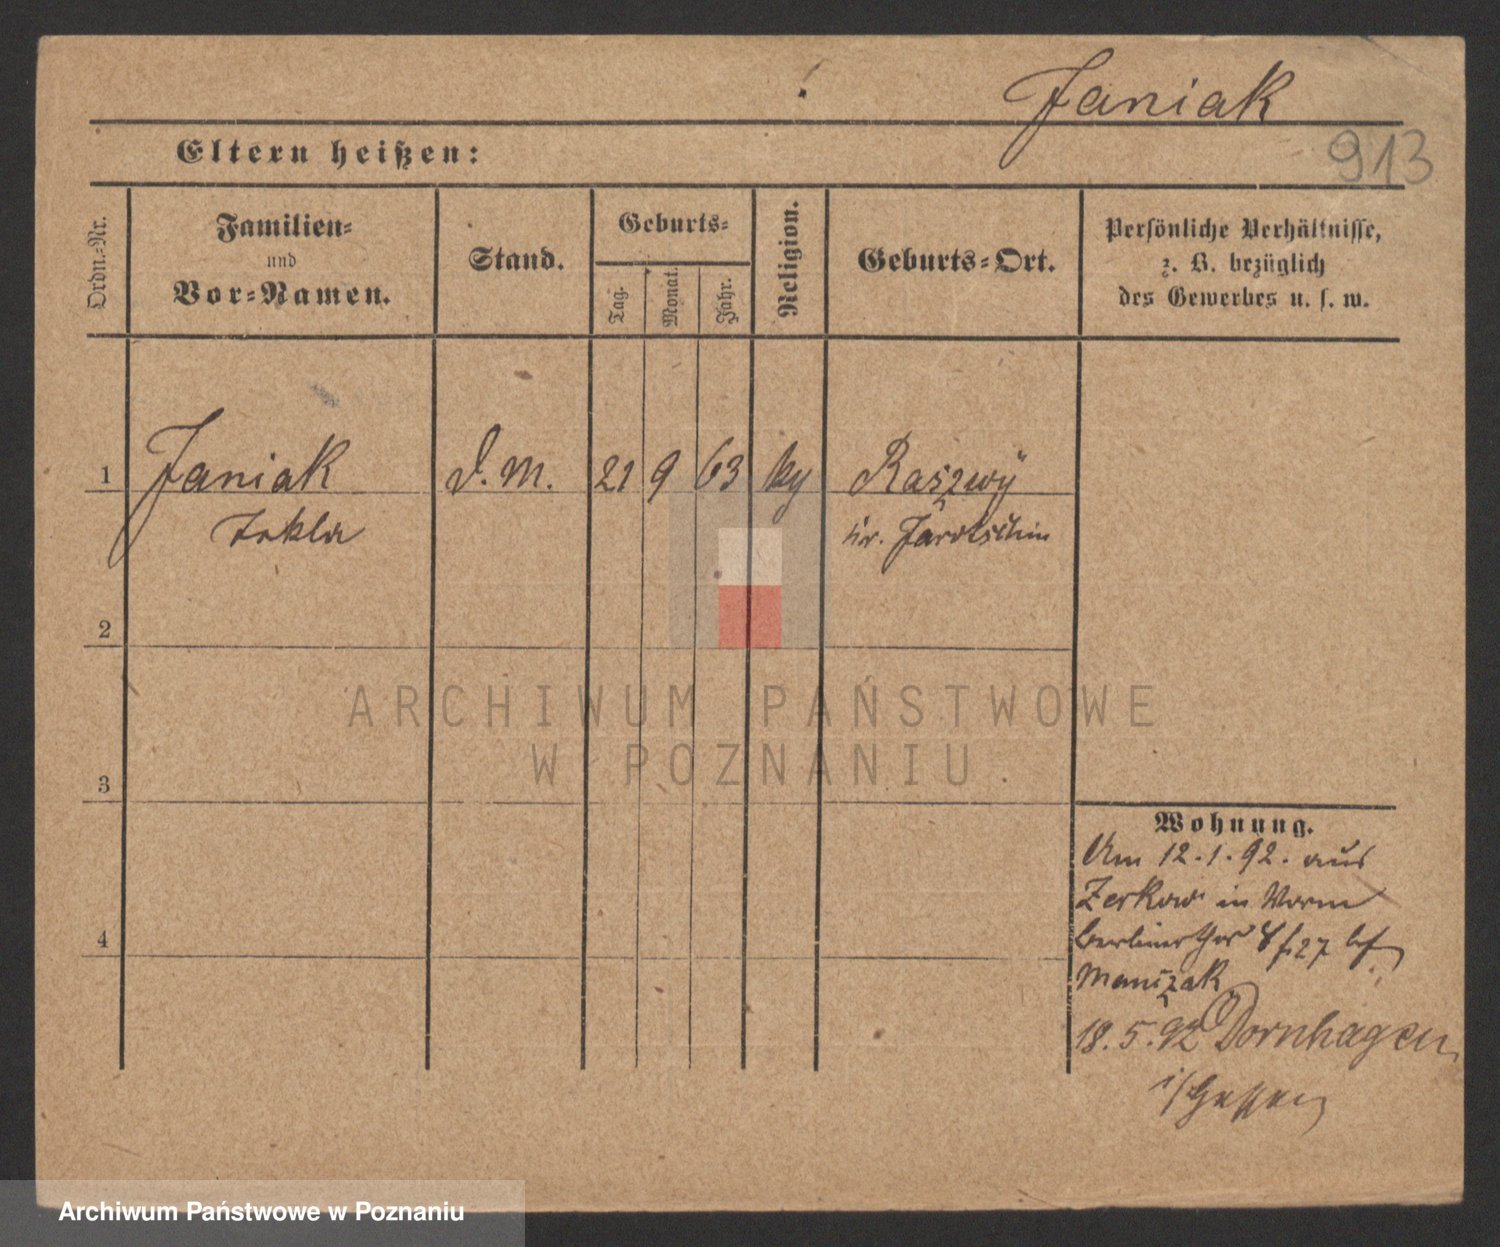 Janiak
913
Eltern heißen:
Ordn.-Nr.
Familien-
und
Vor-Namen.
Stand.
Geburts-
Tag.
Monat.
Jahr.
Religion.
Geburts-Ort.
Persönliche Verhältnisse,
z. B. bezüglich
des Gewerbes u. s. w.
1
Janiak
D. M.
21
9
63
Raszwy
Kr. Jarotschin
2
ARCHIWUM PAŃSTWOWE
W POZNANIU
3
Wohnung.
Am 12.1.92. aus
Zerkow in
Berliner Thor
4
18.5.92 Dornhagen
i/Hessen
Archiwum Państwowe w Poznaniu